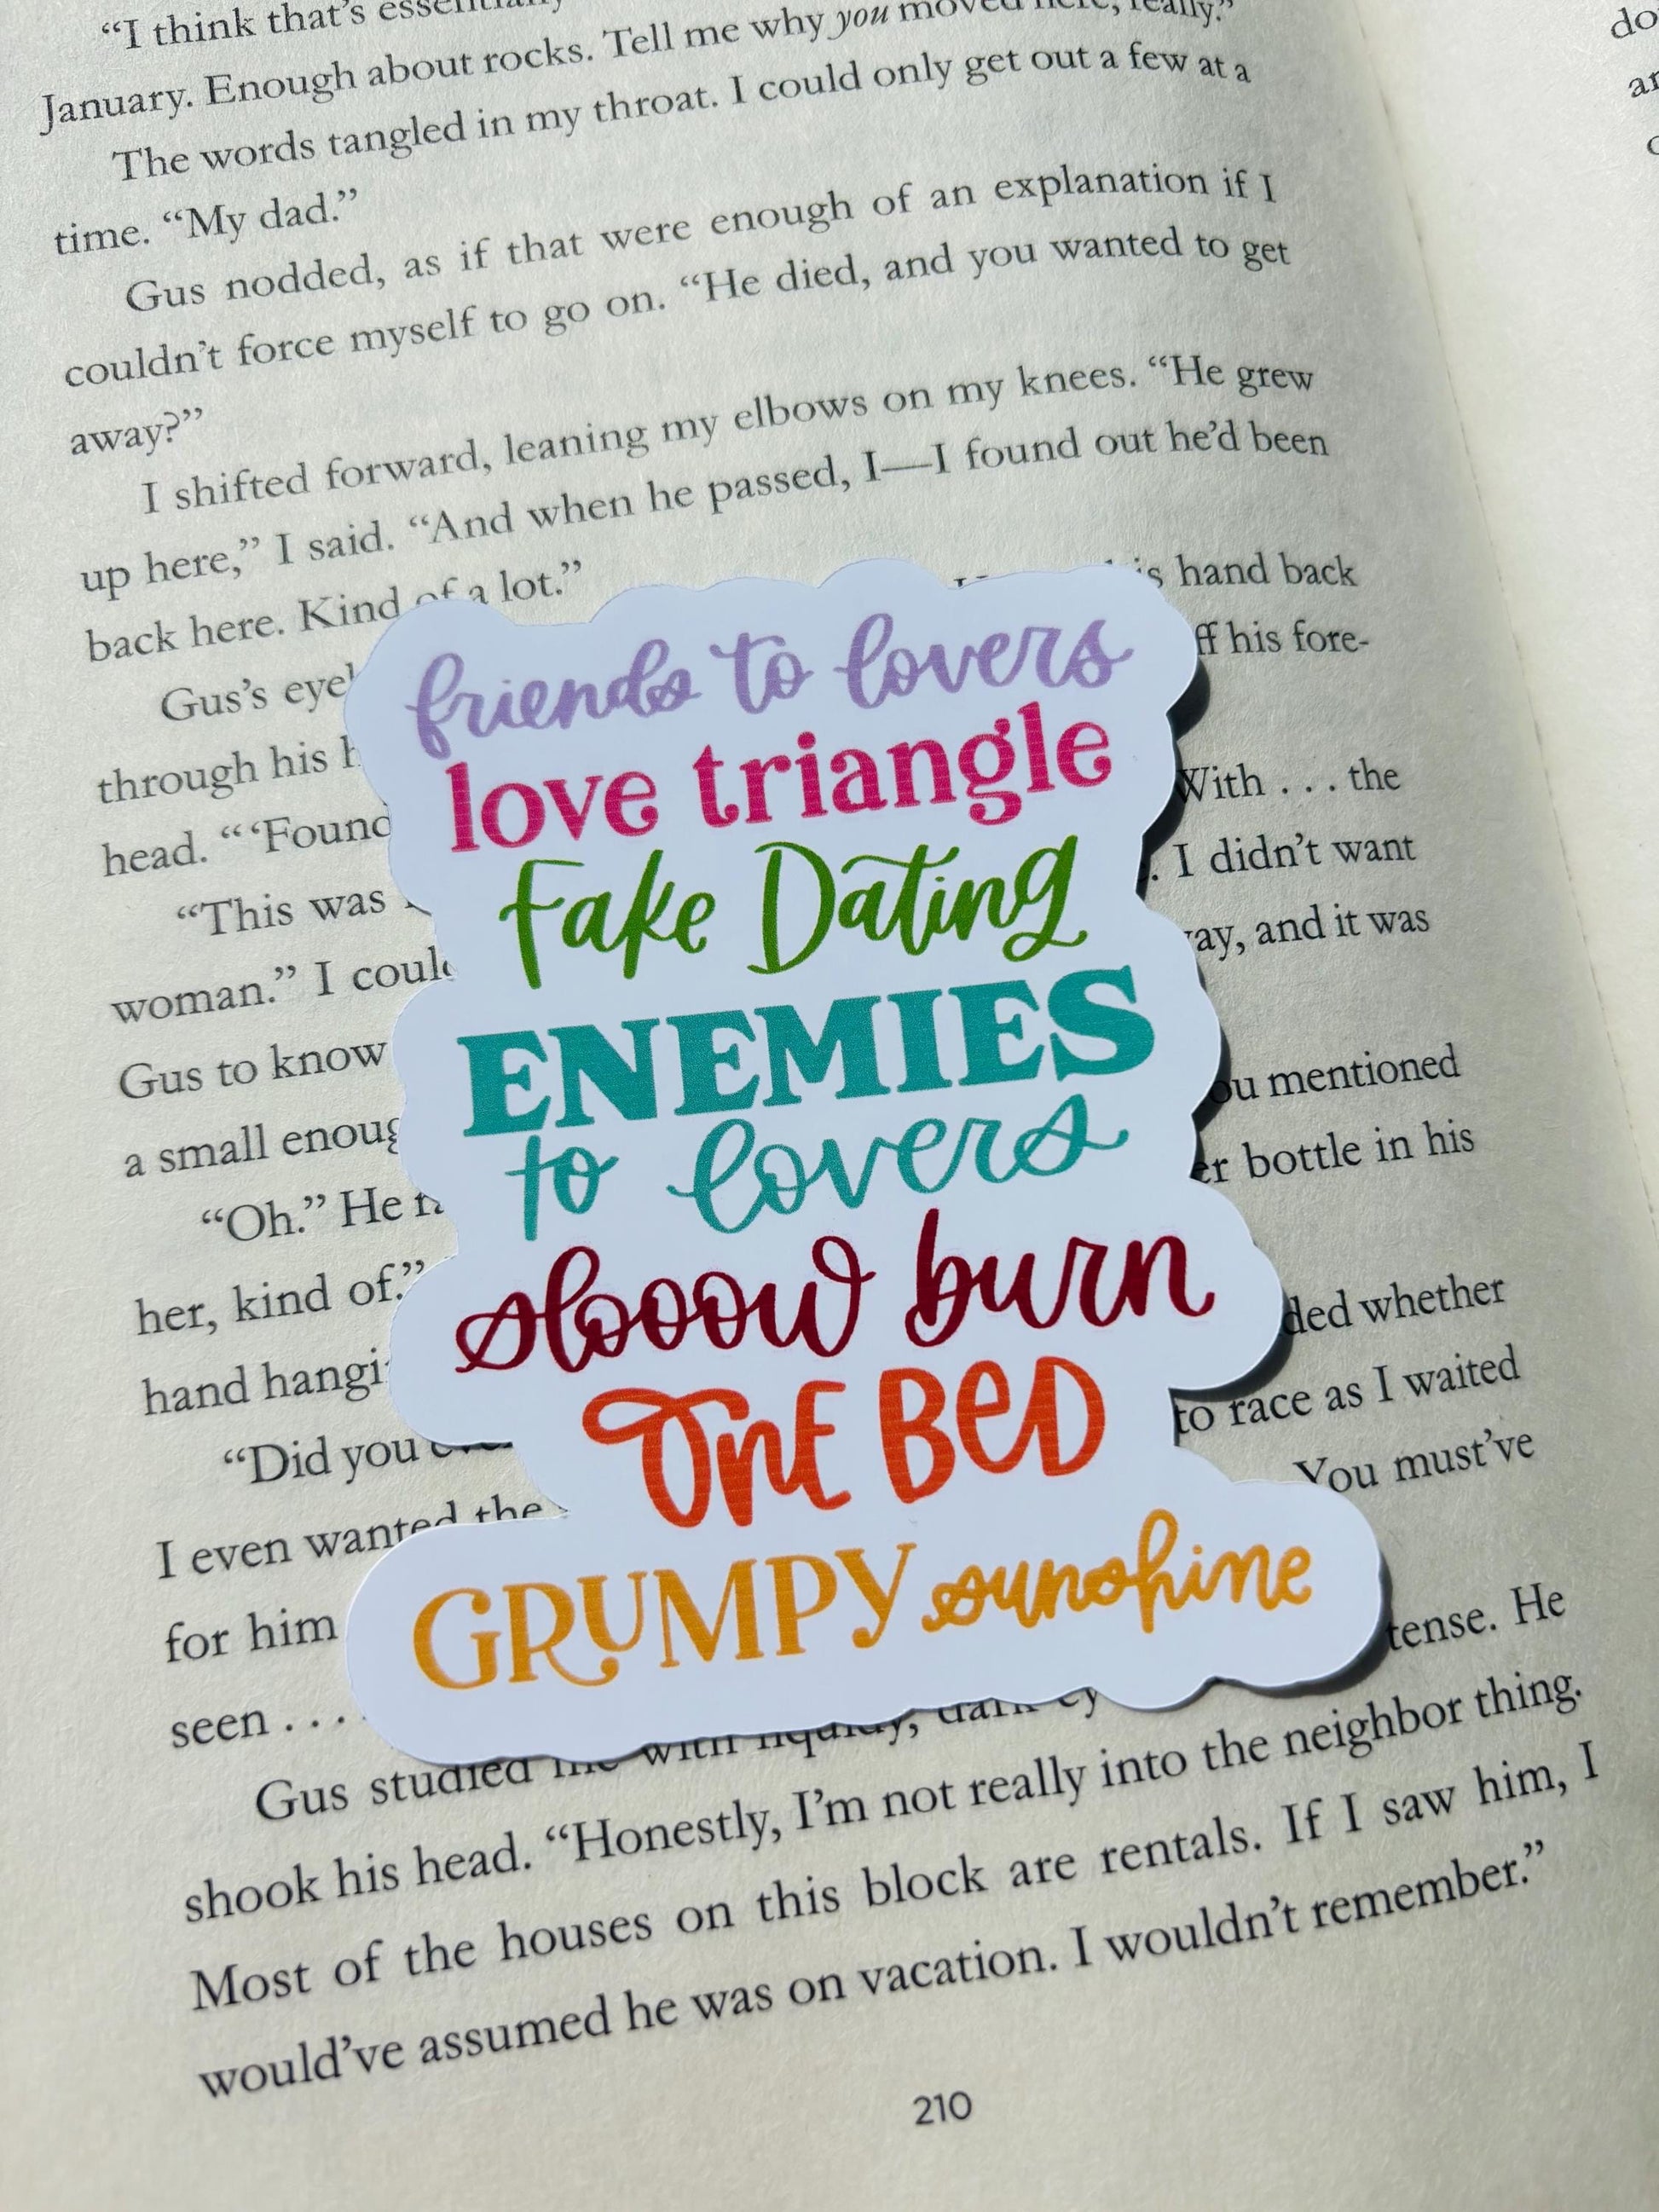 “I think that’s
January. Enough about rocks. Tell me why you moved here, really.”
The words tangled in my throat. I could only get out a few at a
time. “My dad.”
Gus nodded, as if that were enough of an explanation if I
couldn’t force myself to go on. “He died, and you wanted to get
away?”
I shifted forward, leaning my elbows on my knees. “He grew
up here,” I said. “And when he passed, I—I found out he’d been
back here. Kind of a lot.”
Gus’s
his hand back
through his
his fore-
head. “‘Found
With . . . the
“This was
. I didn’t want
woman.” I
and it was
Gus to know
a small
mentioned
“Oh.” He
bottle in his
her, kind of.”
hand
whether
“Did you
to race as I waited
I even wanted the
You must’ve
for him
seen . . .
tense. He
Gus studied me with
shook his head. “Honestly, I’m not really into the neighbor thing.
Most of the houses on this block are rentals. If I saw him, I
would’ve assumed he was on vacation. I wouldn’t remember.”
210
friends to lovers
love triangle
Fake Dating
ENEMIES
to lovers
slooow burn
OnE BeD
GRUMPY sunshine